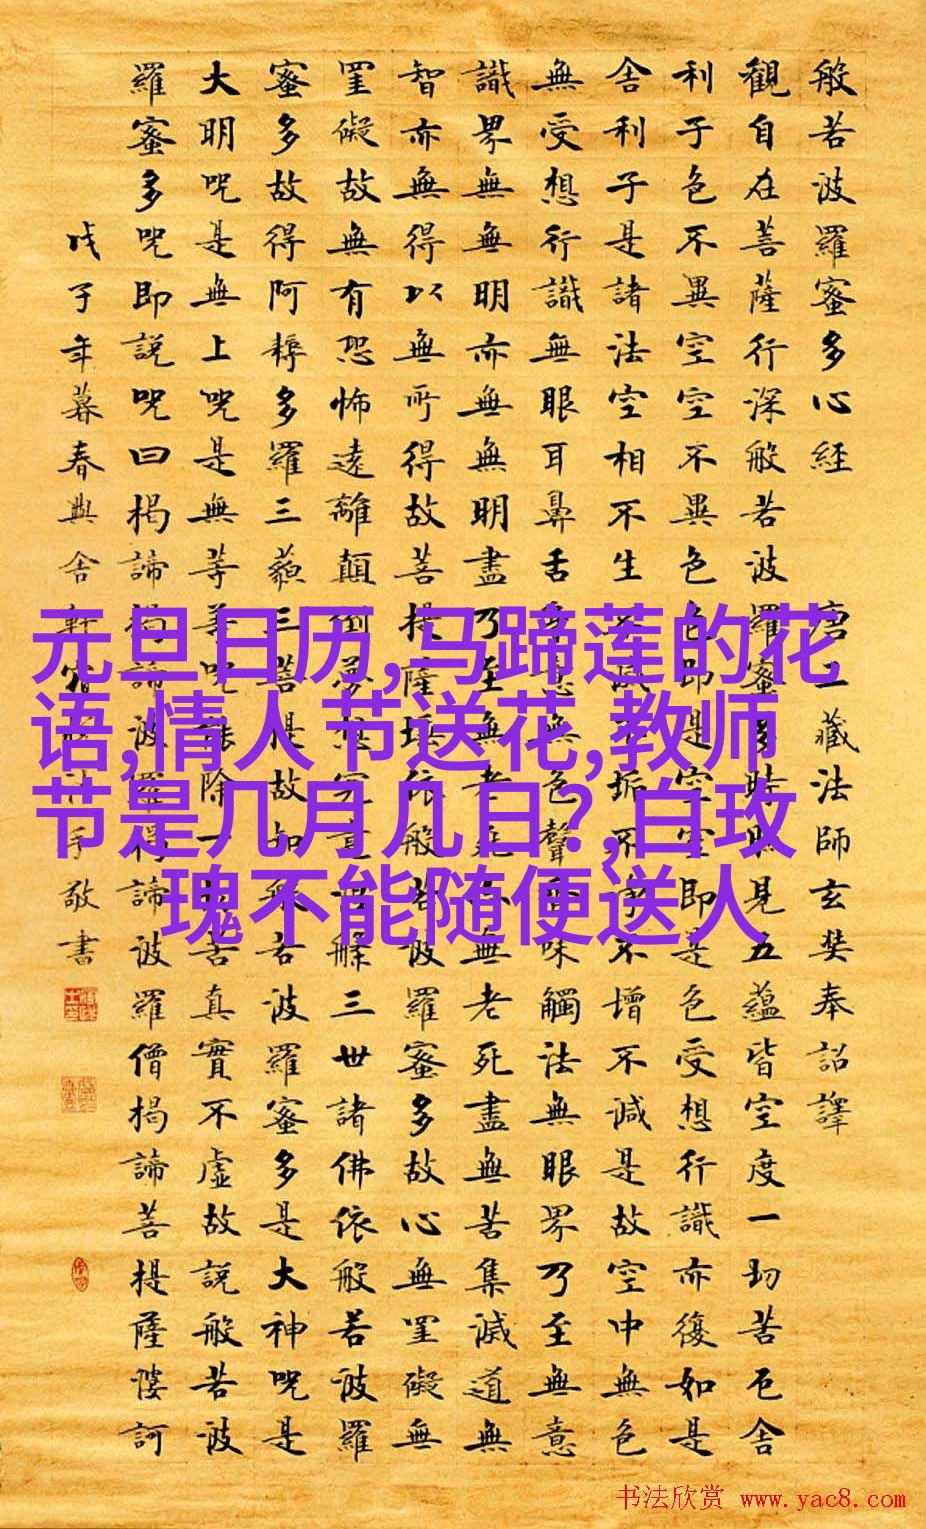 般若波羅蜜多心經 唐三藏法師玄奘奉詔譯
觀自在菩薩行深般若波羅蜜多時照見五蘊皆空度一切苦厄舍
利子色不異空空不異色色即是空空即是色受想行識亦復如是
舍利子是諸法空相不生不滅不垢不淨不增不減是故空中無色
無受想行識無眼耳鼻舌身意無色聲香味觸法無眼界乃至無意
識界無無明亦無無明盡乃至無老死亦無老死盡無苦集滅道無
智亦無得以無所得故菩提薩埵依般若波羅蜜多故心無罣礙無
罣礙故無有恐怖遠離顛倒夢想究竟涅槃三世諸佛依般若波羅
蜜多故得阿耨多羅三藐三菩提故知般若波羅蜜多是大神咒是
大明咒是無上咒是無等等咒能除一切苦真實不虛故說般若波
羅蜜多咒即說咒曰揭諦揭諦波羅揭諦波羅僧揭諦菩提薩婆訶
戊子年暮春 敬書
元旦日历,马蹄莲的花
语,情人节送花,教师
节是几月几日?,白玫
瑰不能随便送人
书法欣赏 www.yac8.com